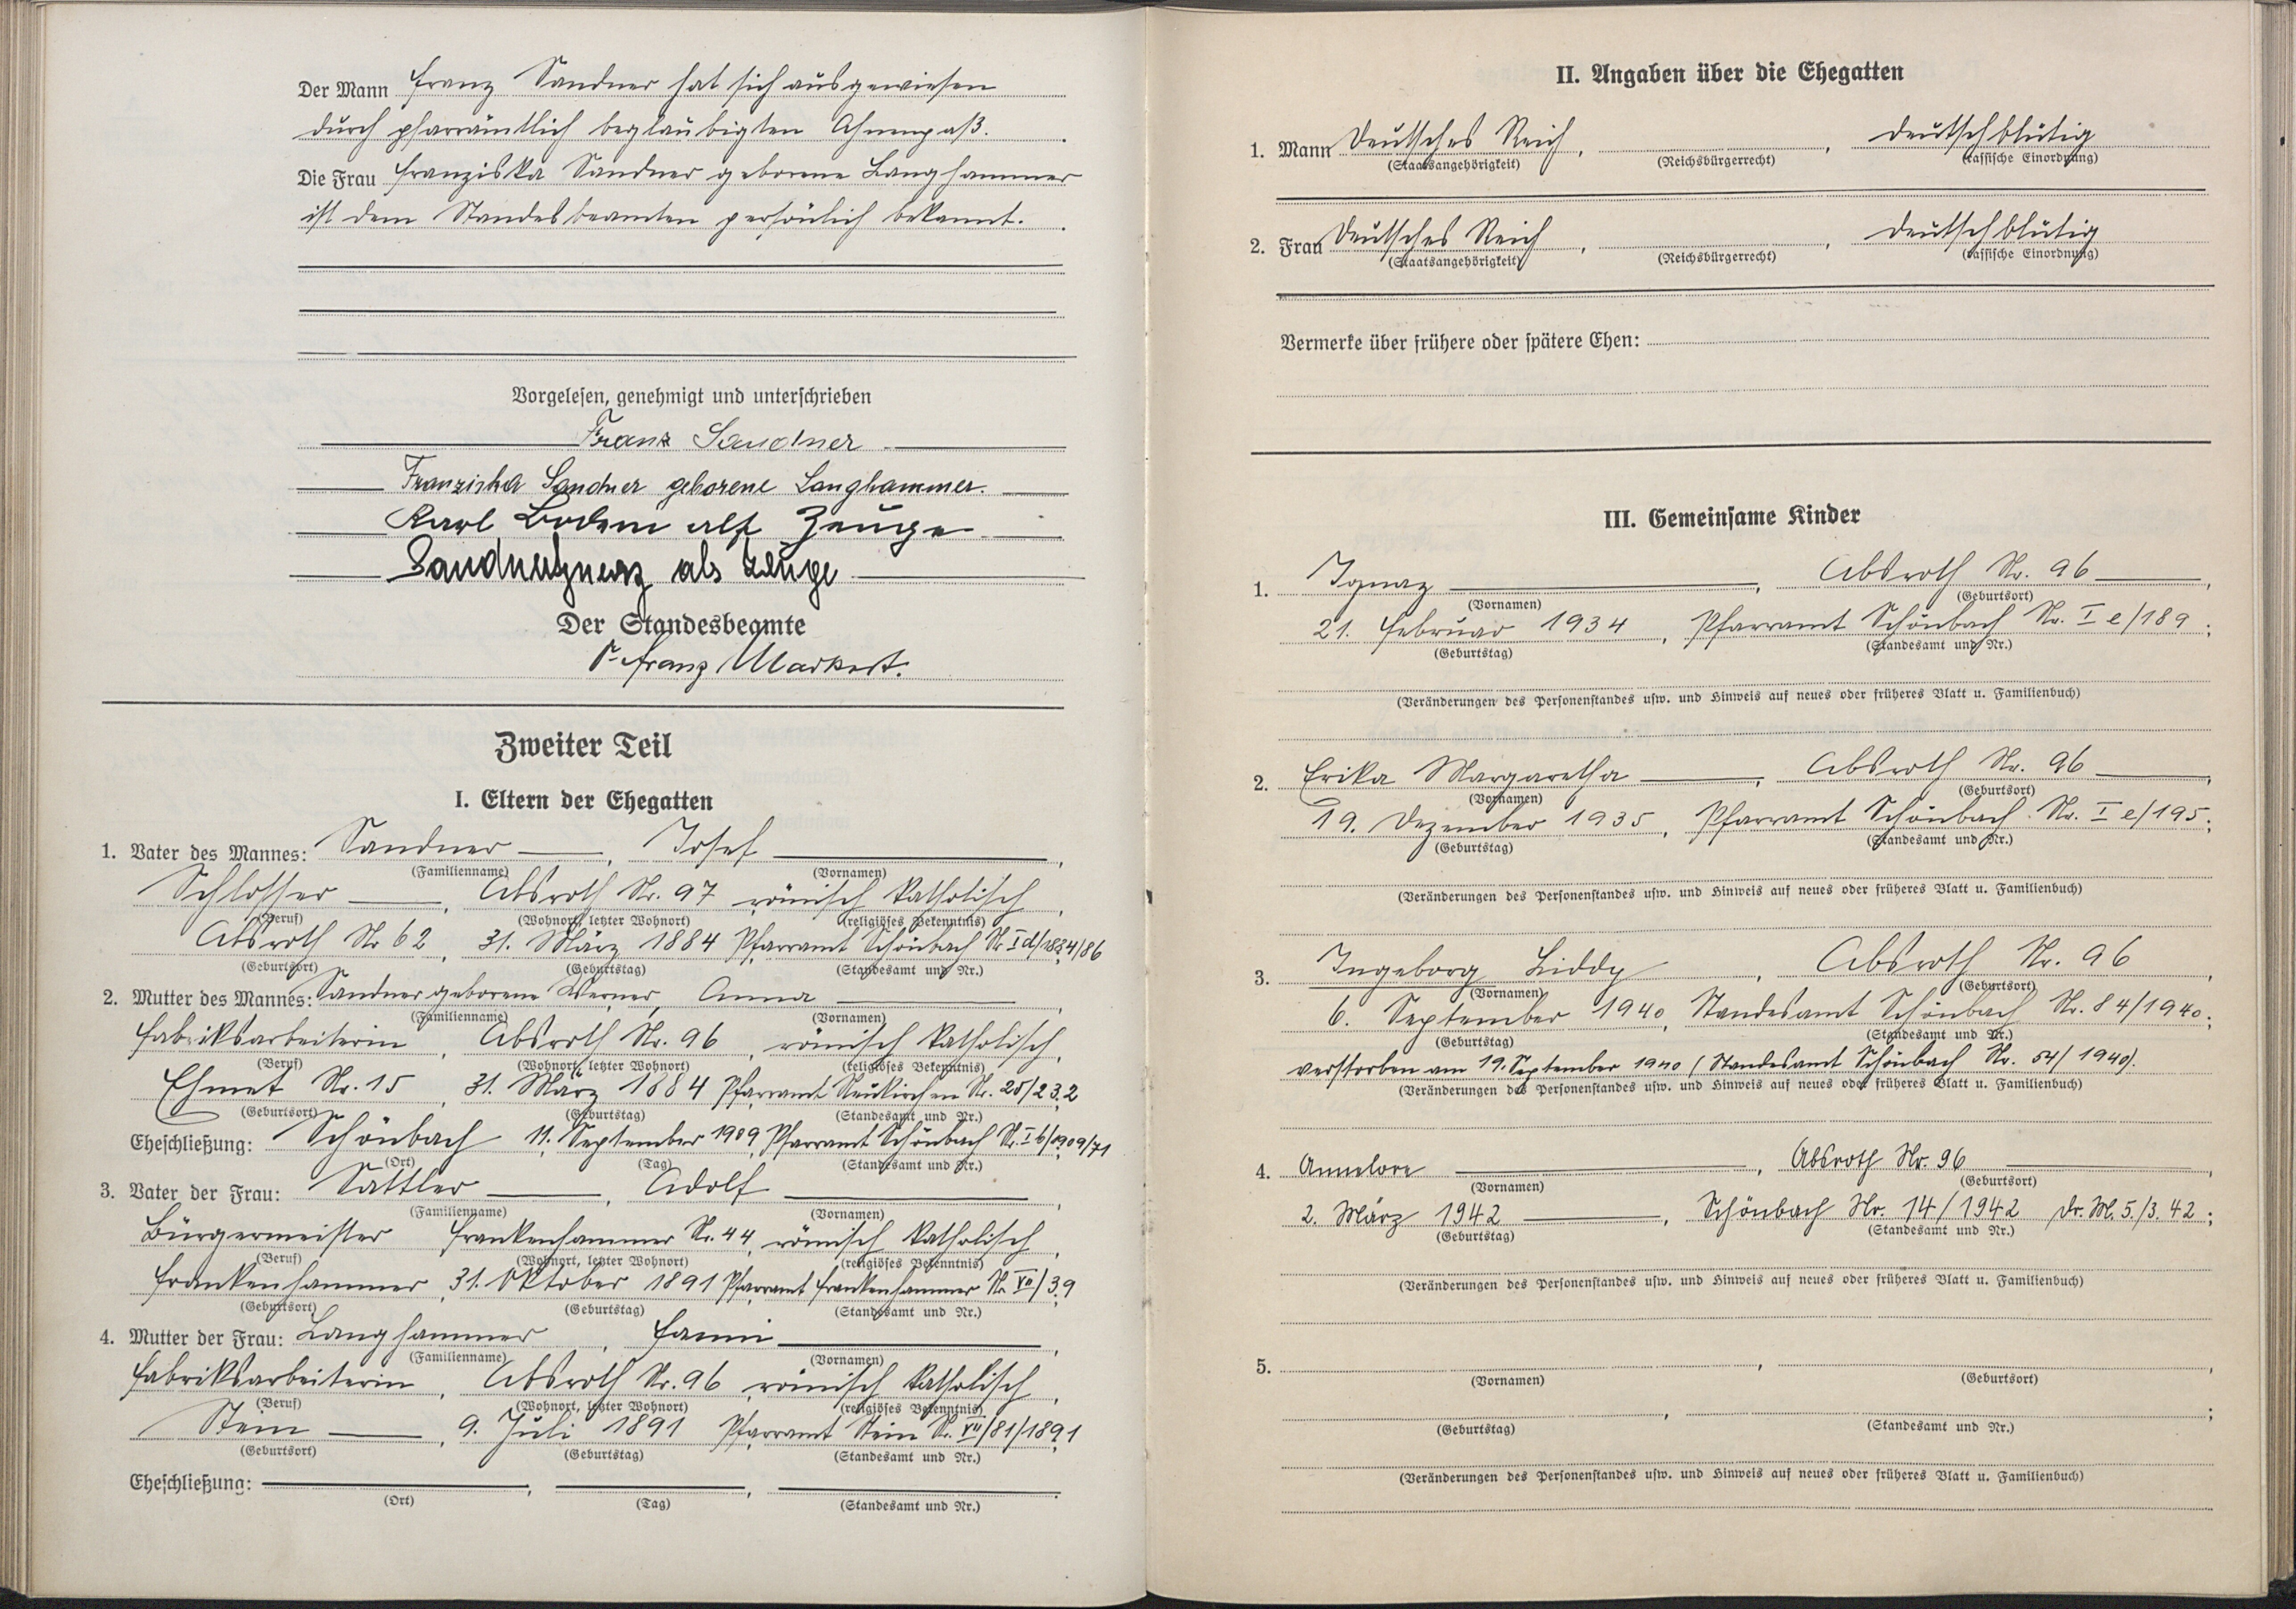 Der Mann Franz Sandner hat sich ausgewiesen
durch pfarrämtlich beglaubigten Ahnenpaß.
Die Frau Franziska Sandner geborene Langhammer
ist dem Standesbeamten persönlich bekannt.
Vorgelesen, genehmigt und unterschrieben
Franz Sandner
Franziska Sandner geborene Langhammer.
Karl als Zeuge
als Zeuge
Der Standesbeamte
Franz Markert.
Zweiter Teil
I. Eltern der Ehegatten
1. Vater des Mannes: Sandner, Josef,
(Familienname) (Vornamen)
Schlosser, Absroth Nr. 97 römisch katholisch,
(Beruf) (Wohnort, letzter Wohnort) (religiöses Bekenntnis)
Absroth Nr 62, 31. März 1884 Pfarramt Schönbach Nr. I d/1884/86
(Geburtsort) (Geburtstag) (Standesamt und Nr.)
2. Mutter des Mannes: Sandner geborene Werner, Anna,
(Familienname) (Vornamen)
Fabriksarbeiterin, Absroth Nr. 96, römisch katholisch,
(Beruf) (Wohnort, letzter Wohnort) (religiöses Bekenntnis)
Ehmet Nr. 15, 31. März 1884 Pfarramt Neukirchen Nr. 25/232
(Geburtsort) (Geburtstag) (Standesamt und Nr.)
Eheschließung: Schönbach 11. September 1909, Pfarramt Schönbach Nr. I b/1909/71
(Ort) (Tag) (Standesamt und Nr.)
3. Vater der Frau: Sattler, Adolf,
(Familienname) (Vornamen)
Bürgermeister Frankenhammer Nr. 44, römisch katholisch,
(Beruf) (Wohnort, letzter Wohnort) (religiöses Bekenntnis)
Frankenhammer, 31. Oktober 1891 Pfarramt Frankenhammer Nr. VII/39
(Geburtsort) (Geburtstag) (Standesamt und Nr.)
4. Mutter der Frau: Langhammer, Fanni,
(Familienname) (Vornamen)
Fabriksarbeiterin, Absroth Nr. 96 römisch katholisch,
(Beruf) (Wohnort, letzter Wohnort) (religiöses Bekenntnis)
Stein, 9. Juli 1891 Pfarramt Stein Nr. VII/81/1891
(Geburtsort) (Geburtstag) (Standesamt und Nr.)
Eheschließung: , , .
(Ort) (Tag) (Standesamt und Nr.)
II. Angaben über die Ehegatten
1. Mann Deutsches Reich, , deutschblütig
(Staatsangehörigkeit) (Reichsbürgerrecht) (rassische Einordnung)
2. Frau Deutsches Reich, , deutschblütig
(Staatsangehörigkeit) (Reichsbürgerrecht) (rassische Einordnung)
Vermerke über frühere oder spätere Ehen:
III. Gemeinsame Kinder
1. Ignaz, Absroth Nr. 96,
(Vornamen) (Geburtsort)
21. Februar 1934, Pfarramt Schönbach Nr. I e/189;
(Geburtstag) (Standesamt und Nr.)
(Veränderungen des Personenstandes usw. und Hinweis auf neues oder früheres Blatt u. Familienbuch)
2. Erika Margaretha, Absroth Nr. 96,
(Vornamen) (Geburtsort)
19. Dezember 1935, Pfarramt Schönbach Nr. I e/195;
(Geburtstag) (Standesamt und Nr.)
(Veränderungen des Personenstandes usw. und Hinweis auf neues oder früheres Blatt u. Familienbuch)
3. Ingeborg Liddy, Absroth Nr. 96,
(Vornamen) (Geburtsort)
6. September 1940, Standesamt Schönbach Nr. 84/1940;
(Geburtstag) (Standesamt und Nr.)
verstorben am 19. September 1940 (Standesamt Schönbach Nr. 54/1940).
(Veränderungen des Personenstandes usw. und Hinweis auf neues oder früheres Blatt u. Familienbuch)
4. Annelore, Absroth Nr. 96,
(Vornamen) (Geburtsort)
2. März 1942, Schönbach Nr. 14/1942 Dr. M. 5./3. 42;
(Geburtstag) (Standesamt und Nr.)
(Veränderungen des Personenstandes usw. und Hinweis auf neues oder früheres Blatt u. Familienbuch)
5. , ,
(Vornamen) (Geburtsort)
, ;
(Geburtstag) (Standesamt und Nr.)
(Veränderungen des Personenstandes usw. und Hinweis auf neues oder früheres Blatt u. Familienbuch)